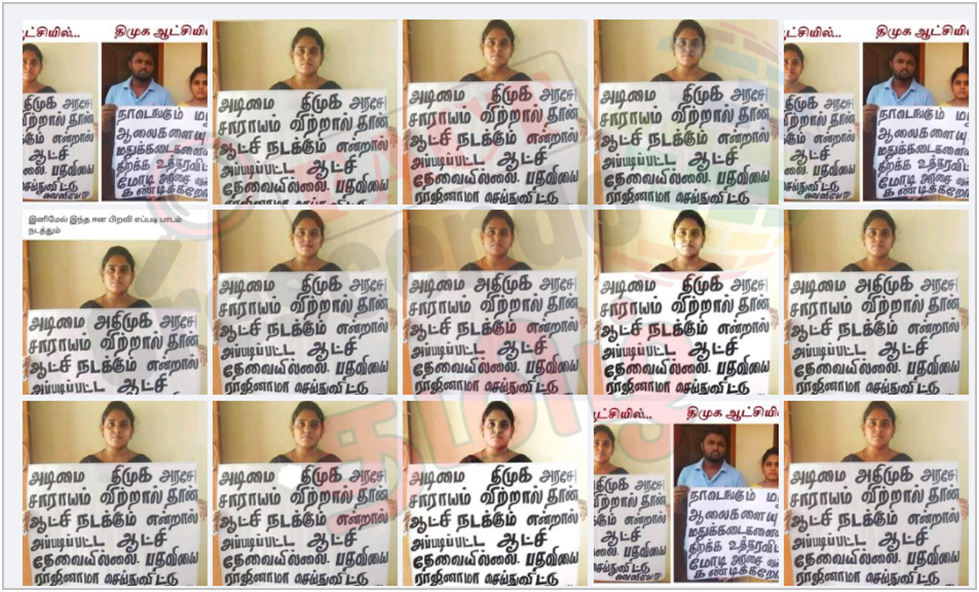 ட்சியில்... திமுக ஆட்சியி
அரசே
விற்றால் தான்
கும் என்றால்
ஆட்சி
லை. பதவியை
செய்துவிட்டு
நாடெங்கும்
ஆலைகளையு
மதுக்கடைகளை
திறக்க உத்தரவி
மோடி அரசை
கண்டிக்கிறே
அடிமை திமுக அரசே
சாராயம் விற்றால் தான்
ஆட்சி நடக்கும் என்றால்
அப்படிப்பட்ட ஆட்சி
தேவையில்லை. பதவியை
அடிமை திமுக அரசே
சாராயம் விற்றால் தான்
ஆட்சி நடக்கும் என்றால்
அப்படிப்பட்ட ஆட்சி
தேவையில்லை. பதவியை
ராஜினாமா செய்துவிட்டு
அடிமை திமுக அரசே
சாராயம் விற்றால் தான்
ஆட்சி நடக்கும் என்றால்
அப்படிப்பட்ட ஆட்சி
தேவையில்லை. பதவியை
ராஜினாமா செய்துவிட்டு
ட்சியில்... திமுக ஆட்சியி
அரசே
விற்றால் தான்
கும் என்றால்
ஆட்சி
லை. பதவியை
செய்துவிட்டு
நாடெங்கும்
ஆலைகளையு
மதுக்கடைகளை
திறக்க உத்தரவி
மோடி அரசை
கண்டிக்கிறே
இனிமேல் இந்த ஈன பிறவி எப்படி பாடம்
நடத்தும்
அடிமை அதிமுக அரசே
சாராயம் விற்றால் தான்
ஆட்சி நடக்கும் என்றால்
அப்படிப்பட்ட ஆட்சி
அடிமை திமுக அரசே
சாராயம் விற்றால் தான்
ஆட்சி நடக்கும் என்றால்
அப்படிப்பட்ட ஆட்சி
தேவையில்லை. பதவியை
ராஜினாமா செய்துவிட்டு
அடிமை அதிமுக அரசே
சாராயம் விற்றால் தான்
ஆட்சி நடக்கும் என்றால்
அப்படிப்பட்ட ஆட்சி
தேவையில்லை. பதவியை
ராஜினாமா செய்துவிட்டு
அடிமை திமுக அரசே
சாராயம் விற்றால் தான்
ஆட்சி நடக்கும் என்றால்
அப்படிப்பட்ட ஆட்சி
தேவையில்லை. பதவியை
ராஜினாமா செய்துவிட்டு
அடிமை அதிமுக அரசே
சாராயம் விற்றால் தான்
ஆட்சி நடக்கும் என்றால்
அப்படிப்பட்ட ஆட்சி
தேவையில்லை. பதவியை
ராஜினாமா செய்துவிட்டு
அடிமை திமுக அரசே
சாராயம் விற்றால் தான்
ஆட்சி நடக்கும் என்றால்
அப்படிப்பட்ட ஆட்சி
தேவையில்லை. பதவியை
ராஜினாமா செய்துவிட்டு
அடிமை திமுக அரசே
சாராயம் விற்றால் தான்
ஆட்சி நடக்கும் என்றால்
அப்படிப்பட்ட ஆட்சி
தேவையில்லை. பதவியை
ராஜினாமா செய்துவிட்டு
அடிமை திமுக அரசே
சாராயம் விற்றால் தான்
ஆட்சி நடக்கும் என்றால்
அப்படிப்பட்ட ஆட்சி
தேவையில்லை. பதவியை
ராஜினாமா செய்துவிட்டு
ட்சியில்... திமுக ஆட்சியி
அரசே
விற்றால் தான்
கும் என்றால்
ஆட்சி
லை. பதவியை
செய்துவிட்டு
நாடெங்கும்
ஆலைகளையு
மதுக்கடைகளை
திறக்க உத்தரவி
மோடி அரசை
கண்டிக்கிறே
அடிமை அதிமுக அரசே
சாராயம் விற்றால் தான்
ஆட்சி நடக்கும் என்றால்
அப்படிப்பட்ட ஆட்சி
தேவையில்லை. பதவியை
ராஜினாமா செய்துவிட்டு
தமிழ்